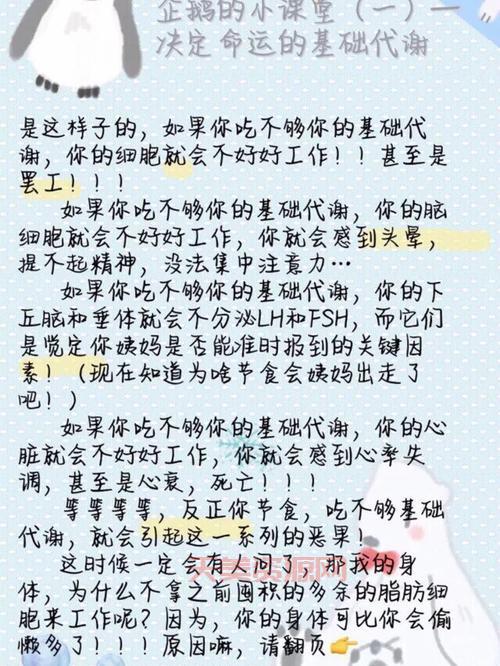 企鹅的小课堂（一）—
决定命运的基础代谢
是这样子的，如果你吃不够你的基础代
谢，你的细胞就会不好好工作！！甚至是
罢工！！！
如果你吃不够你的基础代谢，你的脑
细胞就会不好好工作，你就会感到头晕，
提不起精神，没法集中注意力…
如果你吃不够你的基础代谢，你的下
丘脑和垂体就会不分泌LH和FSH，而它们
是觉定你姨妈是否能准时报到的关键因
素！（现在知道为啥节食会姨妈出走了
吧！）
如果你吃不够你的基础代谢，你的心
脏就会不好好工作，你就会感到心率失
调，甚至是心衰，死亡！！！
等等等等，反正你节食，吃不够基础
代谢，就会引起这一系列的恶果！
这时候一定会有人问了，那我的身
体，为什么不拿之前囤积的多余的脂肪细
胞来工作呢？因为，你的身体可比你会偷
懒多了！！！原因嘛，请翻页👉
天美资源网